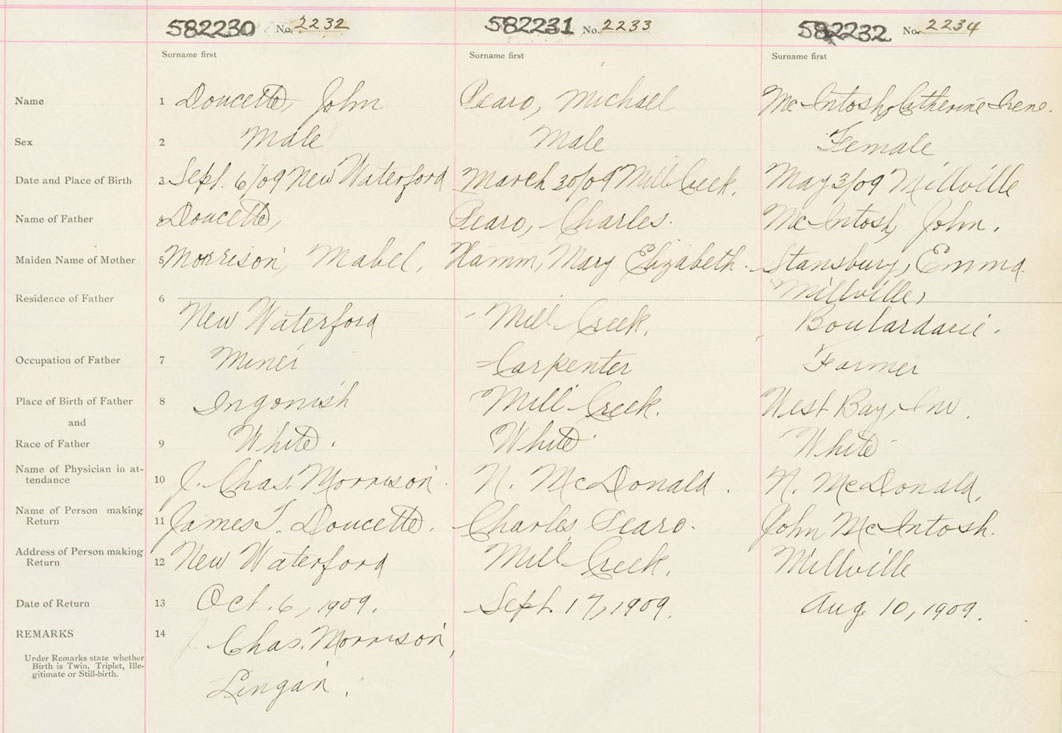 582230 No. 2232 582231 No. 2233 582232 No. 2234
Surname first Surname first Surname first
Name 1 Doucette, John Pearo, Michael McIntosh, Catherine Irene.
Sex 2 Male Male Female
Date and Place of Birth 3 Sept. 6/09 New Waterford March 30/09 Mill Creek. May 3/09 Millville
Name of Father 4 Doucette, Pearo, Charles. McIntosh, John.
Maiden Name of Mother 5 Morrison, Mabel, Hamm, Mary Elizabeth. Stansbury, Emma
Residence of Father 6 Millville,
New Waterford Mill Creek. Boulardarie.
Occupation of Father 7 Miner Carpenter Farmer
Place of Birth of Father 8 Ingonish Mill Creek. West Bay, Inv.
and
Race of Father 9 White. White White
Name of Physician in at-
tendance 10 J. Chas. Morrison. N. McDonald. N. McDonald.
Name of Person making
Return 11 James T. Doucette. Charles Pearo. John McIntosh.
Address of Person making
Return 12 New Waterford Mill Creek. Millville
Date of Return 13 Oct. 6, 1909. Sept. 17, 1909. Aug 10, 1909.
REMARKS 14 J. Chas. Morrison,
Under Remarks state whether
Birth is Twin, Triplet, Ille-
gitimate or Still-birth.
Lingan.